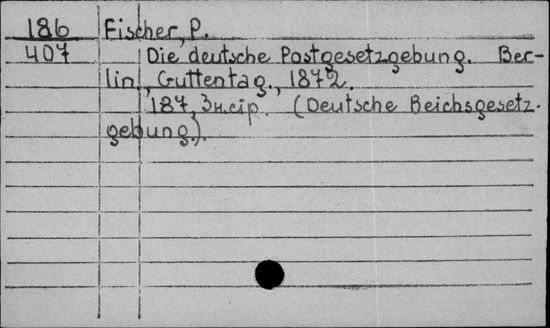 186 Fischer, P.
407 Die deutsche Postgesetzgebung. Ber-
lin., Guttentag., 1872.
187, 3 н.с.р. (Deutsche Reichsgesetz-
gebung.).